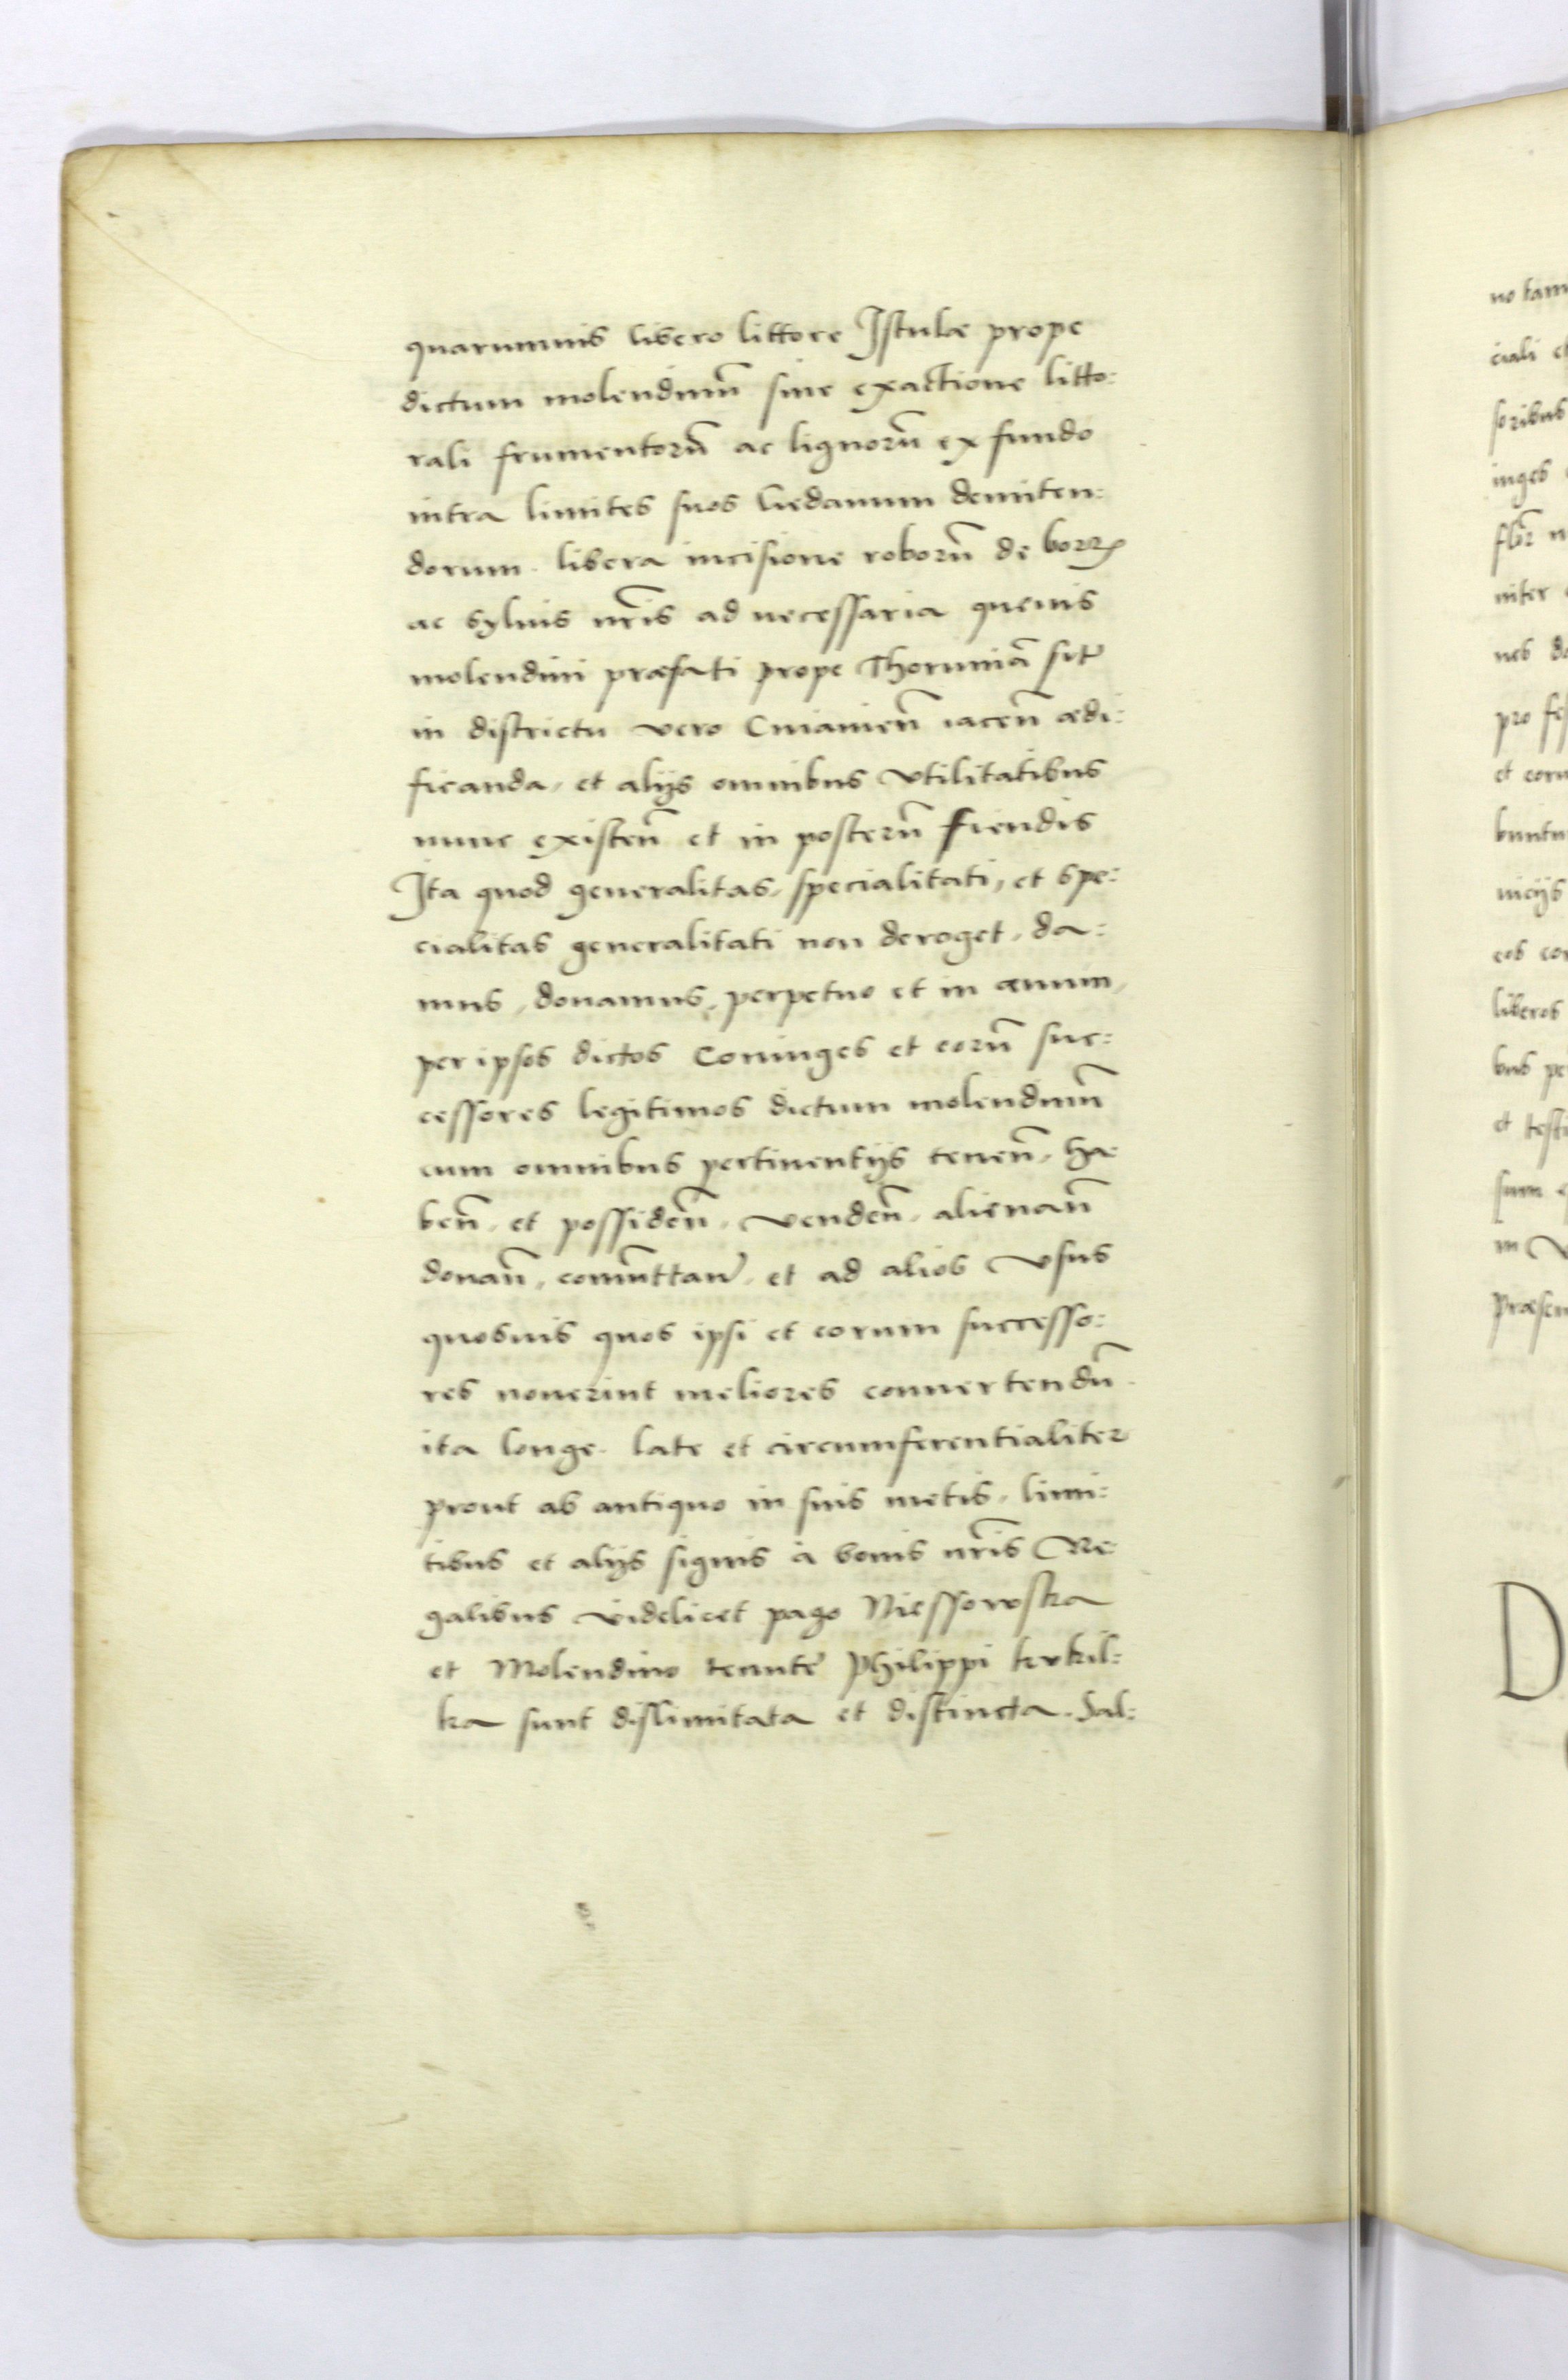 quarumuis libero littore Istulæ prope
dictum molendinũ siue exactione litto:
rali frumentorũ ac lignorũ ex fundo
intra limites suos liedanum demiten:
dorum. libera incisione roborũ de borr
ac syluis nr̃is ad necessaria queuis
molendini præfati prope Thoruniã sit
in districtu vero Cuiauieñ iaceñ ædi:
ficanda, et alijs omnibus vtilitatibus
nunc existeñ et in posterũ fiendis
Ita quod generalitas, specialitati, et spe:
cialitas generalitati non deroget, da:
mus, donamus, perpetuo et in æuum,
per ipsos dictos Coninges et eorũ suc:
cessores legitimos dictum molendinũ
cum omnibus pertinentijs teneñ, ha
beñ, et possideñ, vendeñ, alienañ
donañ, com̃uttañ, et ad alios vsus
quosuis quos ipsi et eorum successo:
res nouerint meliores conuertendũ.
ita longe. late et circumferentialiter
prout ab antiquo in suis metis, limi:
tibus et alijs signis à bonis nr̃is Re
galibus videlicet pago Niessowska
et Molendino Philippi krkil:
ka sunt dislimitata et distincta. Sal:
no tam
ciali et
soribus
inges
niter
nes
pro
et
buntu
nicijs
eos
liberos
bus
et
sum
in
Præsen
D